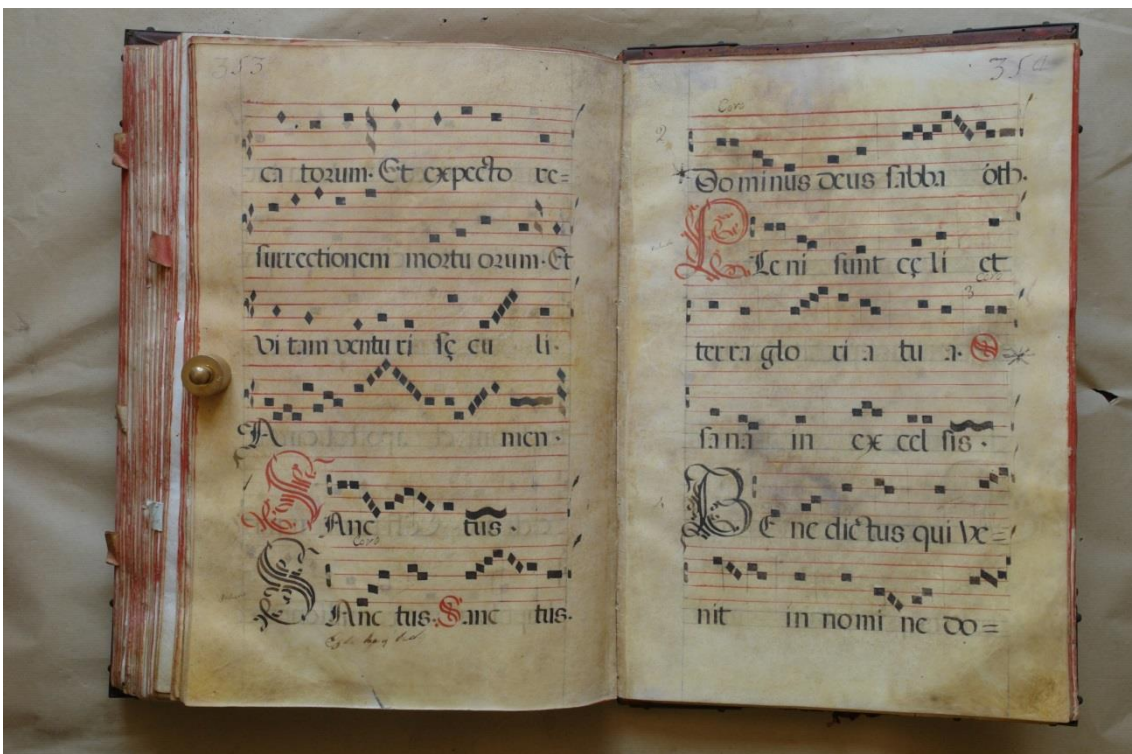 353
ca torum. Et expecto re=
surrectionem mortu orum. Et
vi tam ventu ri sę cu li.
A men.
SAnc tus.
Coro
SAnc tus. Sanc tus.
35
Coro
2
Dominus deus sabba óth.
PLe ni sunt cę li et
3 Coro
ter ra glo ri a tu a. O
sa na in ex cel sis.
BE ne dic tus qui ve=
nit in nomi ne do=